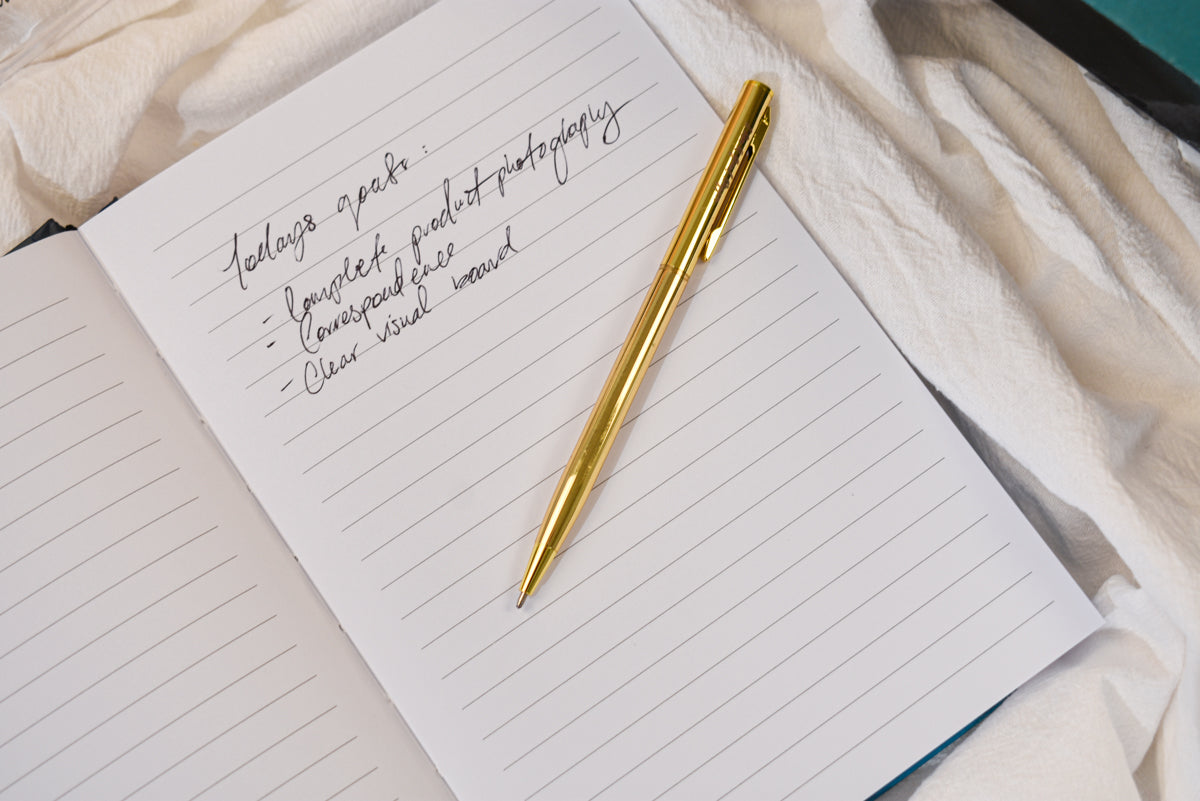 Todays goals:
- Complete product photography
- Correspondence
- Clear visual board